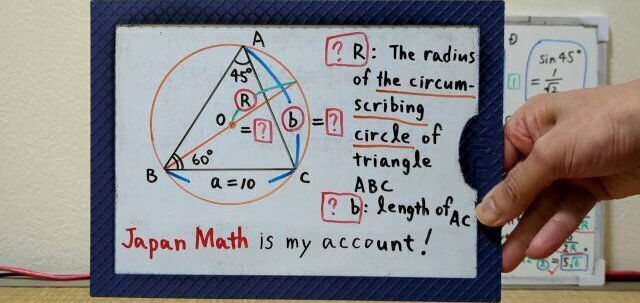 A
45°
R
O
= ?
b = ?
60°
B
a = 10
C
? R : The radius
of the circum-
scribing
circle of
triangle
ABC
? b : length of AC
Japan Math is my account !
sin 45°
= 1/√2
1